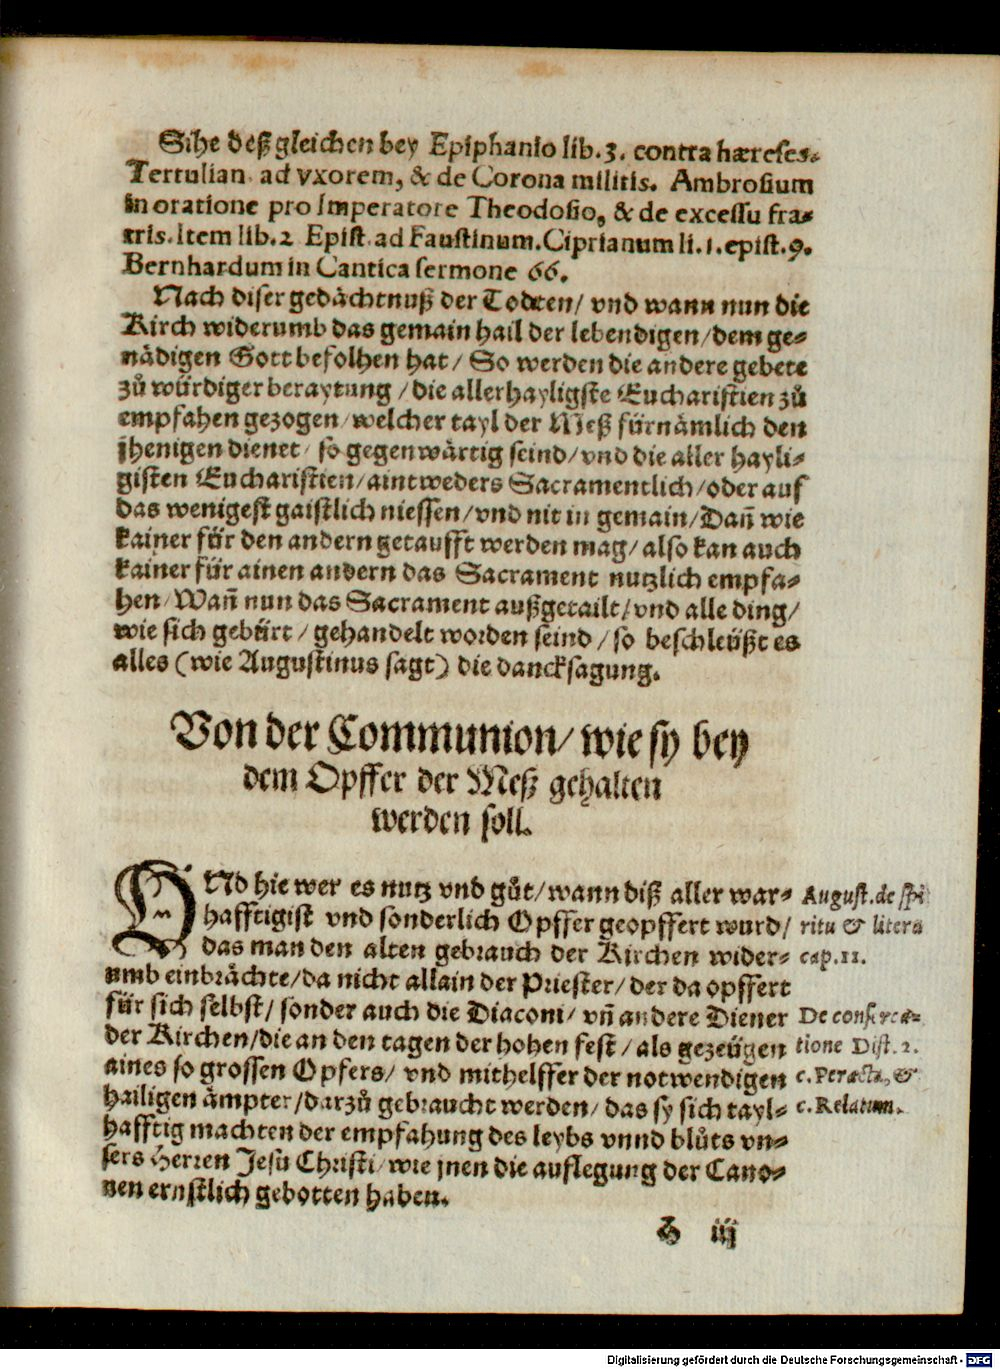 Sihe deß gleichen bey Epiphanio lib. 3. contra hæreses.
Tertulian ad vxorem, & de Corona militis. Ambrosium
in oratione pro Imperatore Theodosio, & de excessu fra-
tris. Item lib. 2 Epist ad Faustinum. Ciprianum li. 1. epist. 9.
Bernhardum in Cantica sermone 66.
Nach diser gedächtnuß der Todten/ vnd wann nun die
Kirch widerumb das gemain hail der lebendigen/dem ge-
nädigen Gott befolhen hat/ So werden die andere gebete
zů würdiger beraytung /die allerhayligste Eucharistien zů
empfahen gezogen/welcher tayl der Meß fürnämlich den
jhenigen dienet/ so gegenwärtig seind/vnd die aller hayli-
gisten Eucharistien/aintweders Sacramentlich/oder auf
das wenigest gaistlich niessen/vnd nit in gemain/Dañ wie
kainer für den andern getaufft werden mag/ also kan auch
kainer für ainen andern das Sacrament nutzlich empfa-
hen/Wañ nun das Sacrament außgetailt/vnd alle ding/
wie sich gebürt/ gehandelt worden seind/ so beschleüßt es
alles (wie Augustinus sagt) die dancksagung.
Von der Communion/ wie sy bey
dem Opffer der Meß gehalten
werden soll.
VNd hie wer es nutz vnd gůt/wann diß aller war-
hafftigist vnd sonderlich Opffer geopffert wurd/
das man den alten gebrauch der Kirchen wider-
umb einbrächte/da nicht allain der Priester/ der da opffert
für sich selbst/ sonder auch die Diaconi/ vñ andere Diener
der Kirchen/die an den tagen der hohen fest/als gezeügen
aines so grossen Opfers/ vnd mithelffer der notwendigen
hailigen ämpter/darzů gebraucht werden/ das sy sich tayl-
hafftig machten der empfahung des leybs vnnd blůts vn-
sers Herren Jesu Christi/wie jnen die auflegung der Cano-
nen ernstlich gebotten haben.
August. de spi
ritu & litera
cap. 11.
De consecra-
tione Dist. 2.
c. Peracta, &
c. Relatum.
G iij
Digitalisierung gefördert durch die Deutsche Forschungsgemeinschaft - DFG